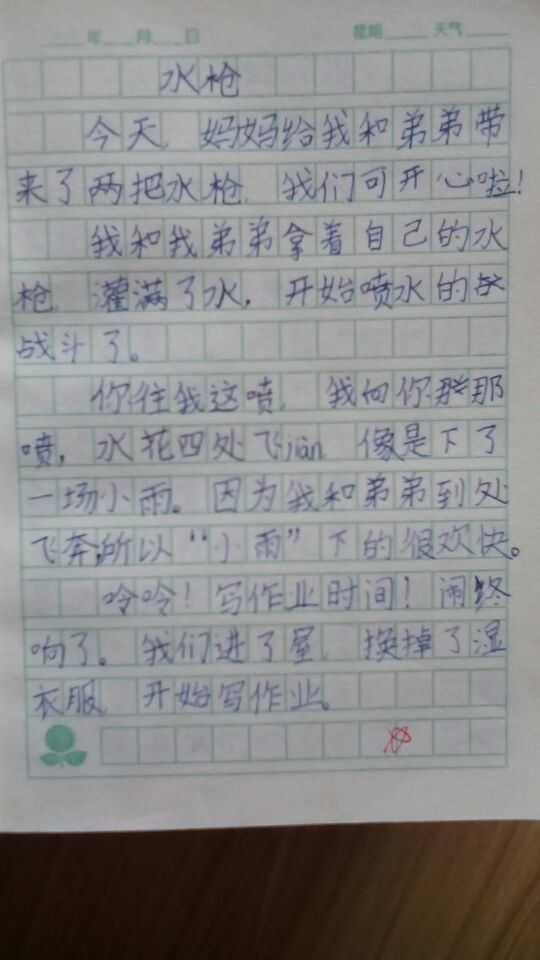 年 月 日 星期 天气
水枪
今天，妈妈给我和弟弟带
来了两把水枪，我们可开心啦！
我和我弟弟拿着自己的水
枪，灌满了水，开始喷水的
战斗了。
你往我这喷，我向你那
喷，水花四处飞jiàn，像是下了
一场小雨。因为我和弟弟到处
飞奔，所以“小雨”下的很欢快。
呤呤！写作业时间！闹终
响了。我们进了屋，换掉了湿
衣服，开始写作业。